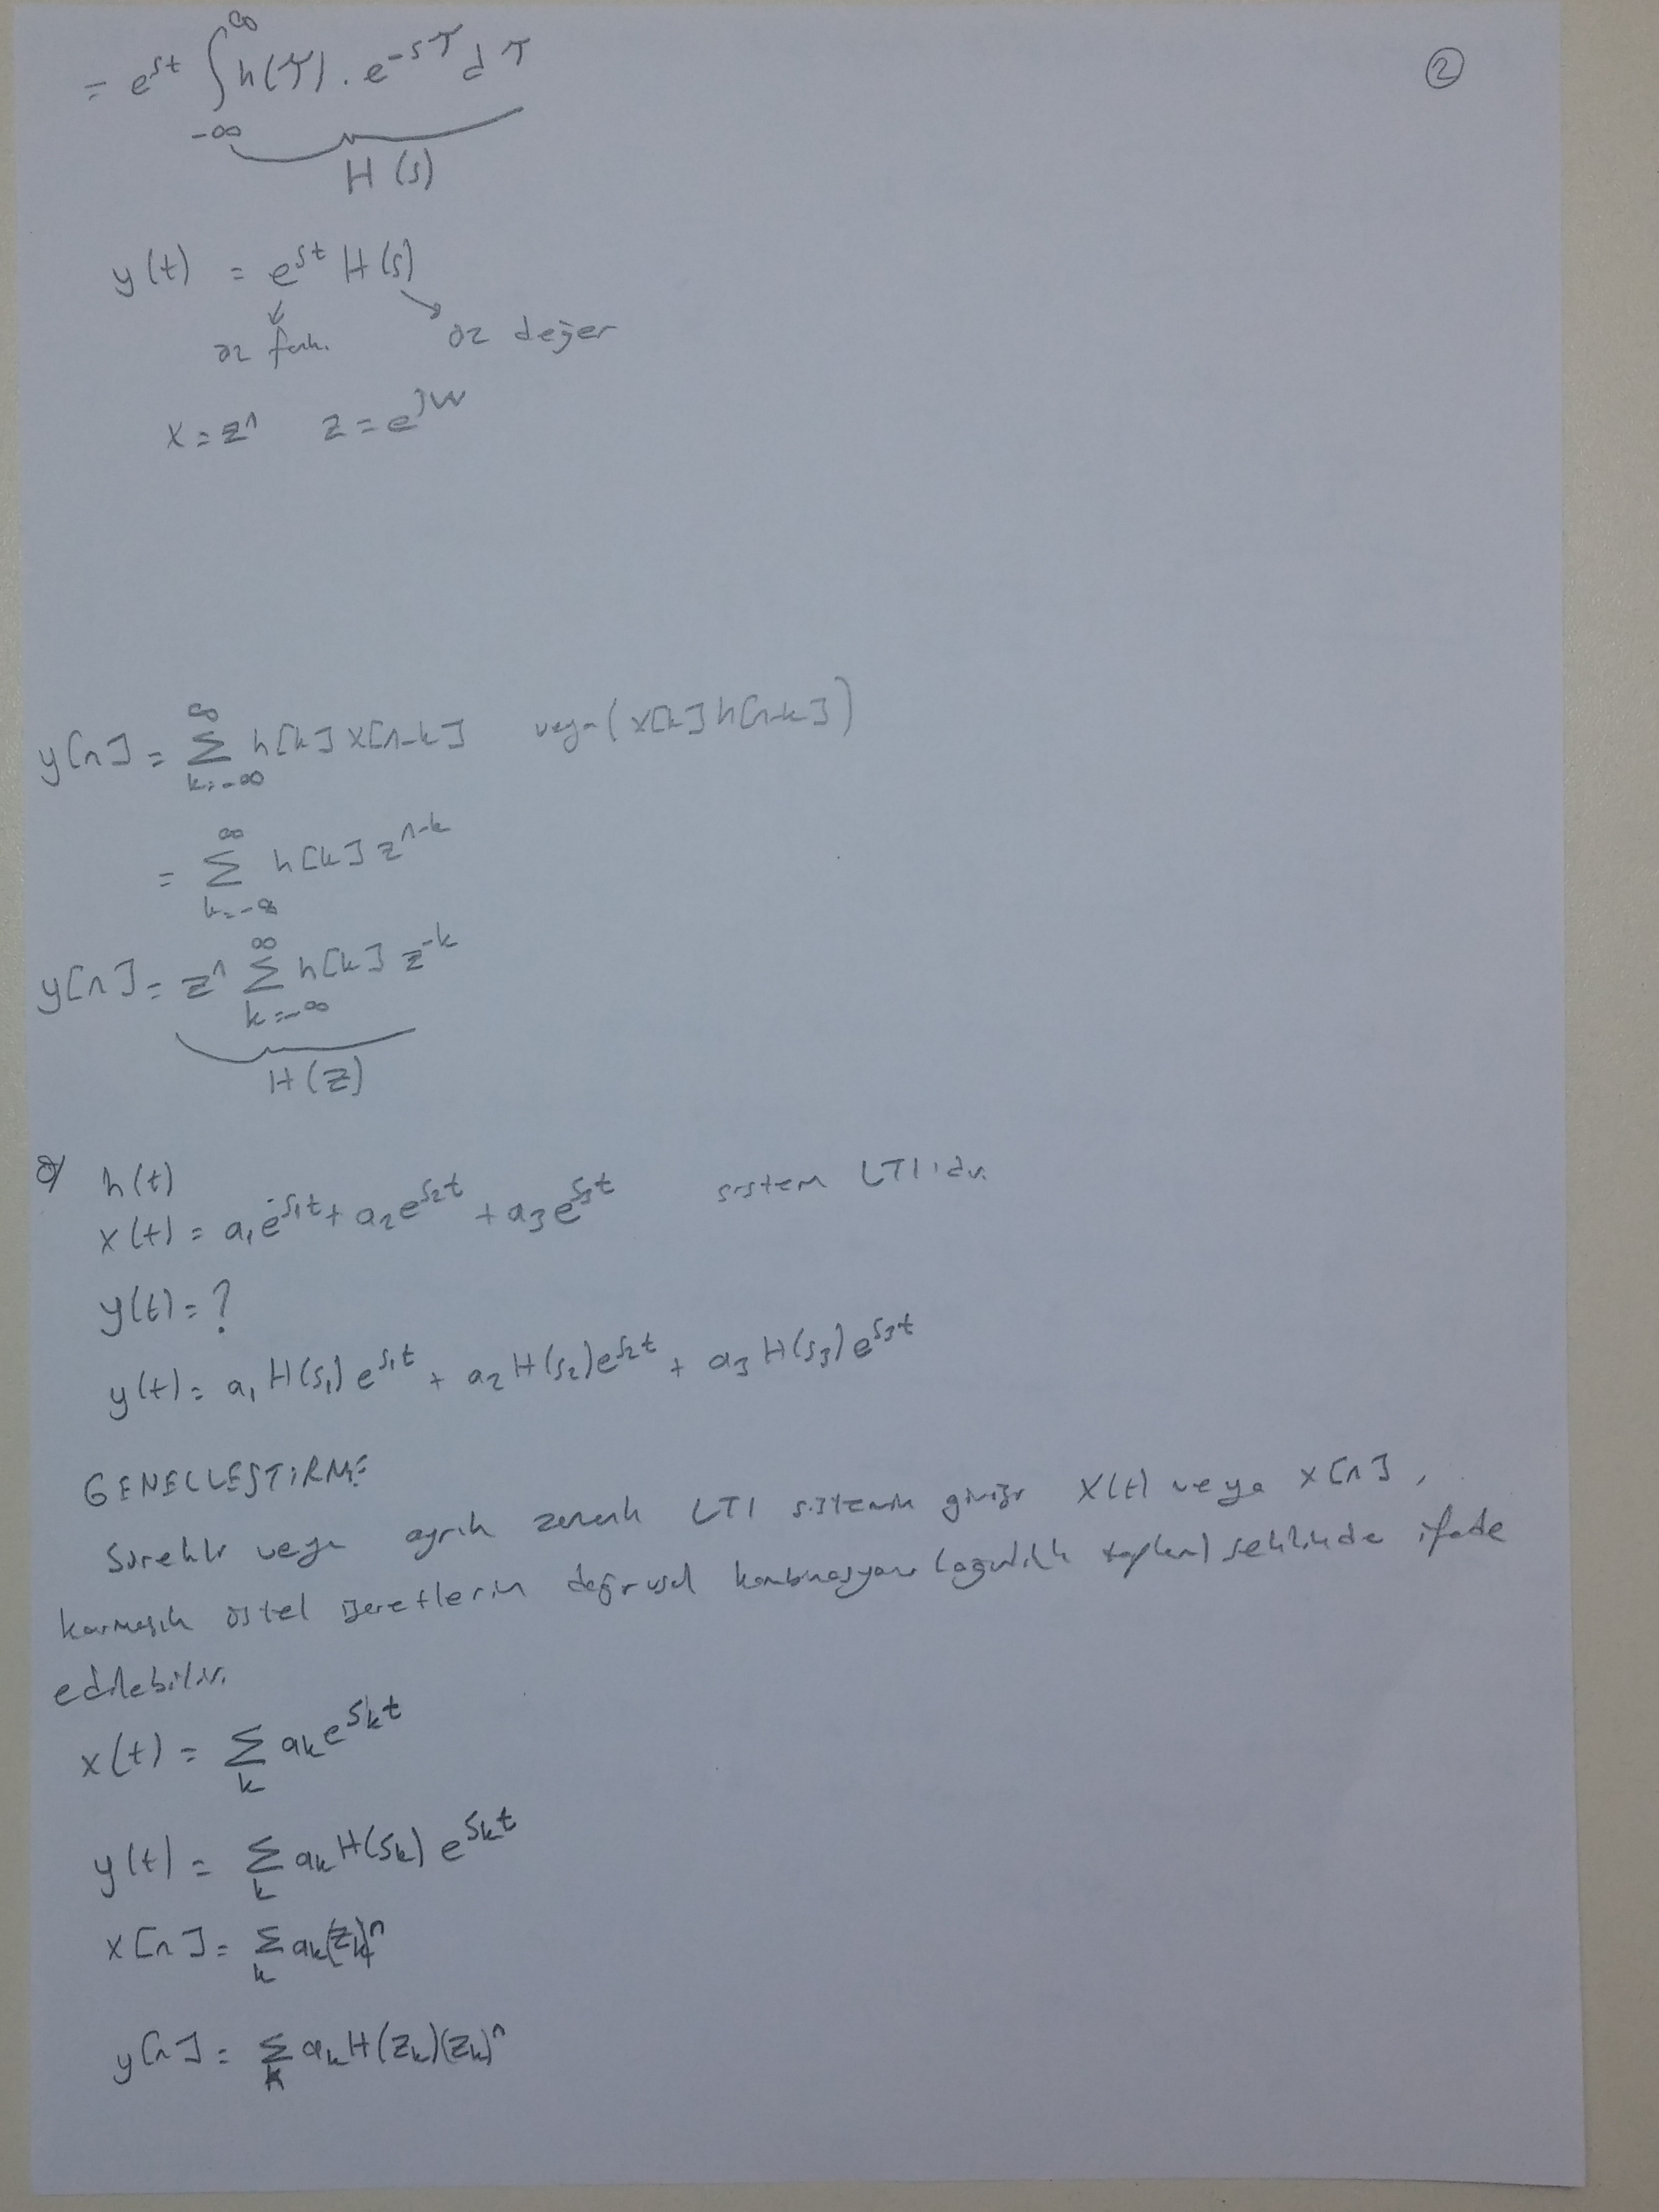 ②
= e^{st} ∫_{-∞}^{∞} h(τ) . e^{-sτ} dτ
H(s)
y(t) = e^{st} H(s)
öz fonk. öz değer
x = z^n z = e^{jw}
y[n] = ∑_{k=-∞}^{∞} h[k] x[n-k] veya (x[k] h[n-k])
= ∑_{k=-∞}^{∞} h[k] z^{n-k}
y[n] = z^n ∑_{k=-∞}^{∞} h[k] z^{-k}
H(z)
h(t)
x(t) = a₁e^{s₁t} + a₂e^{s₂t} + a₃e^{s₃t} sistem LTI'dır.
y(t) = ?
y(t) = a₁ H(s₁) e^{s₁t} + a₂ H(s₂) e^{s₂t} + a₃ H(s₃) e^{s₃t}
GENELLEŞTİRME
Sürekli veya ayrık zamanlı LTI sistemin girişi x(t) veya x[n],
karmaşık üstel işaretlerin doğrusal kombinasyonu (ağırlıklı toplam) şeklinde ifade
edilebilir.
x(t) = ∑_k a_k e^{s_k t}
y(t) = ∑_k a_k H(s_k) e^{s_k t}
x[n] = ∑_k a_k (z_k)^n
y[n] = ∑_k a_k H(z_k)(z_k)^n